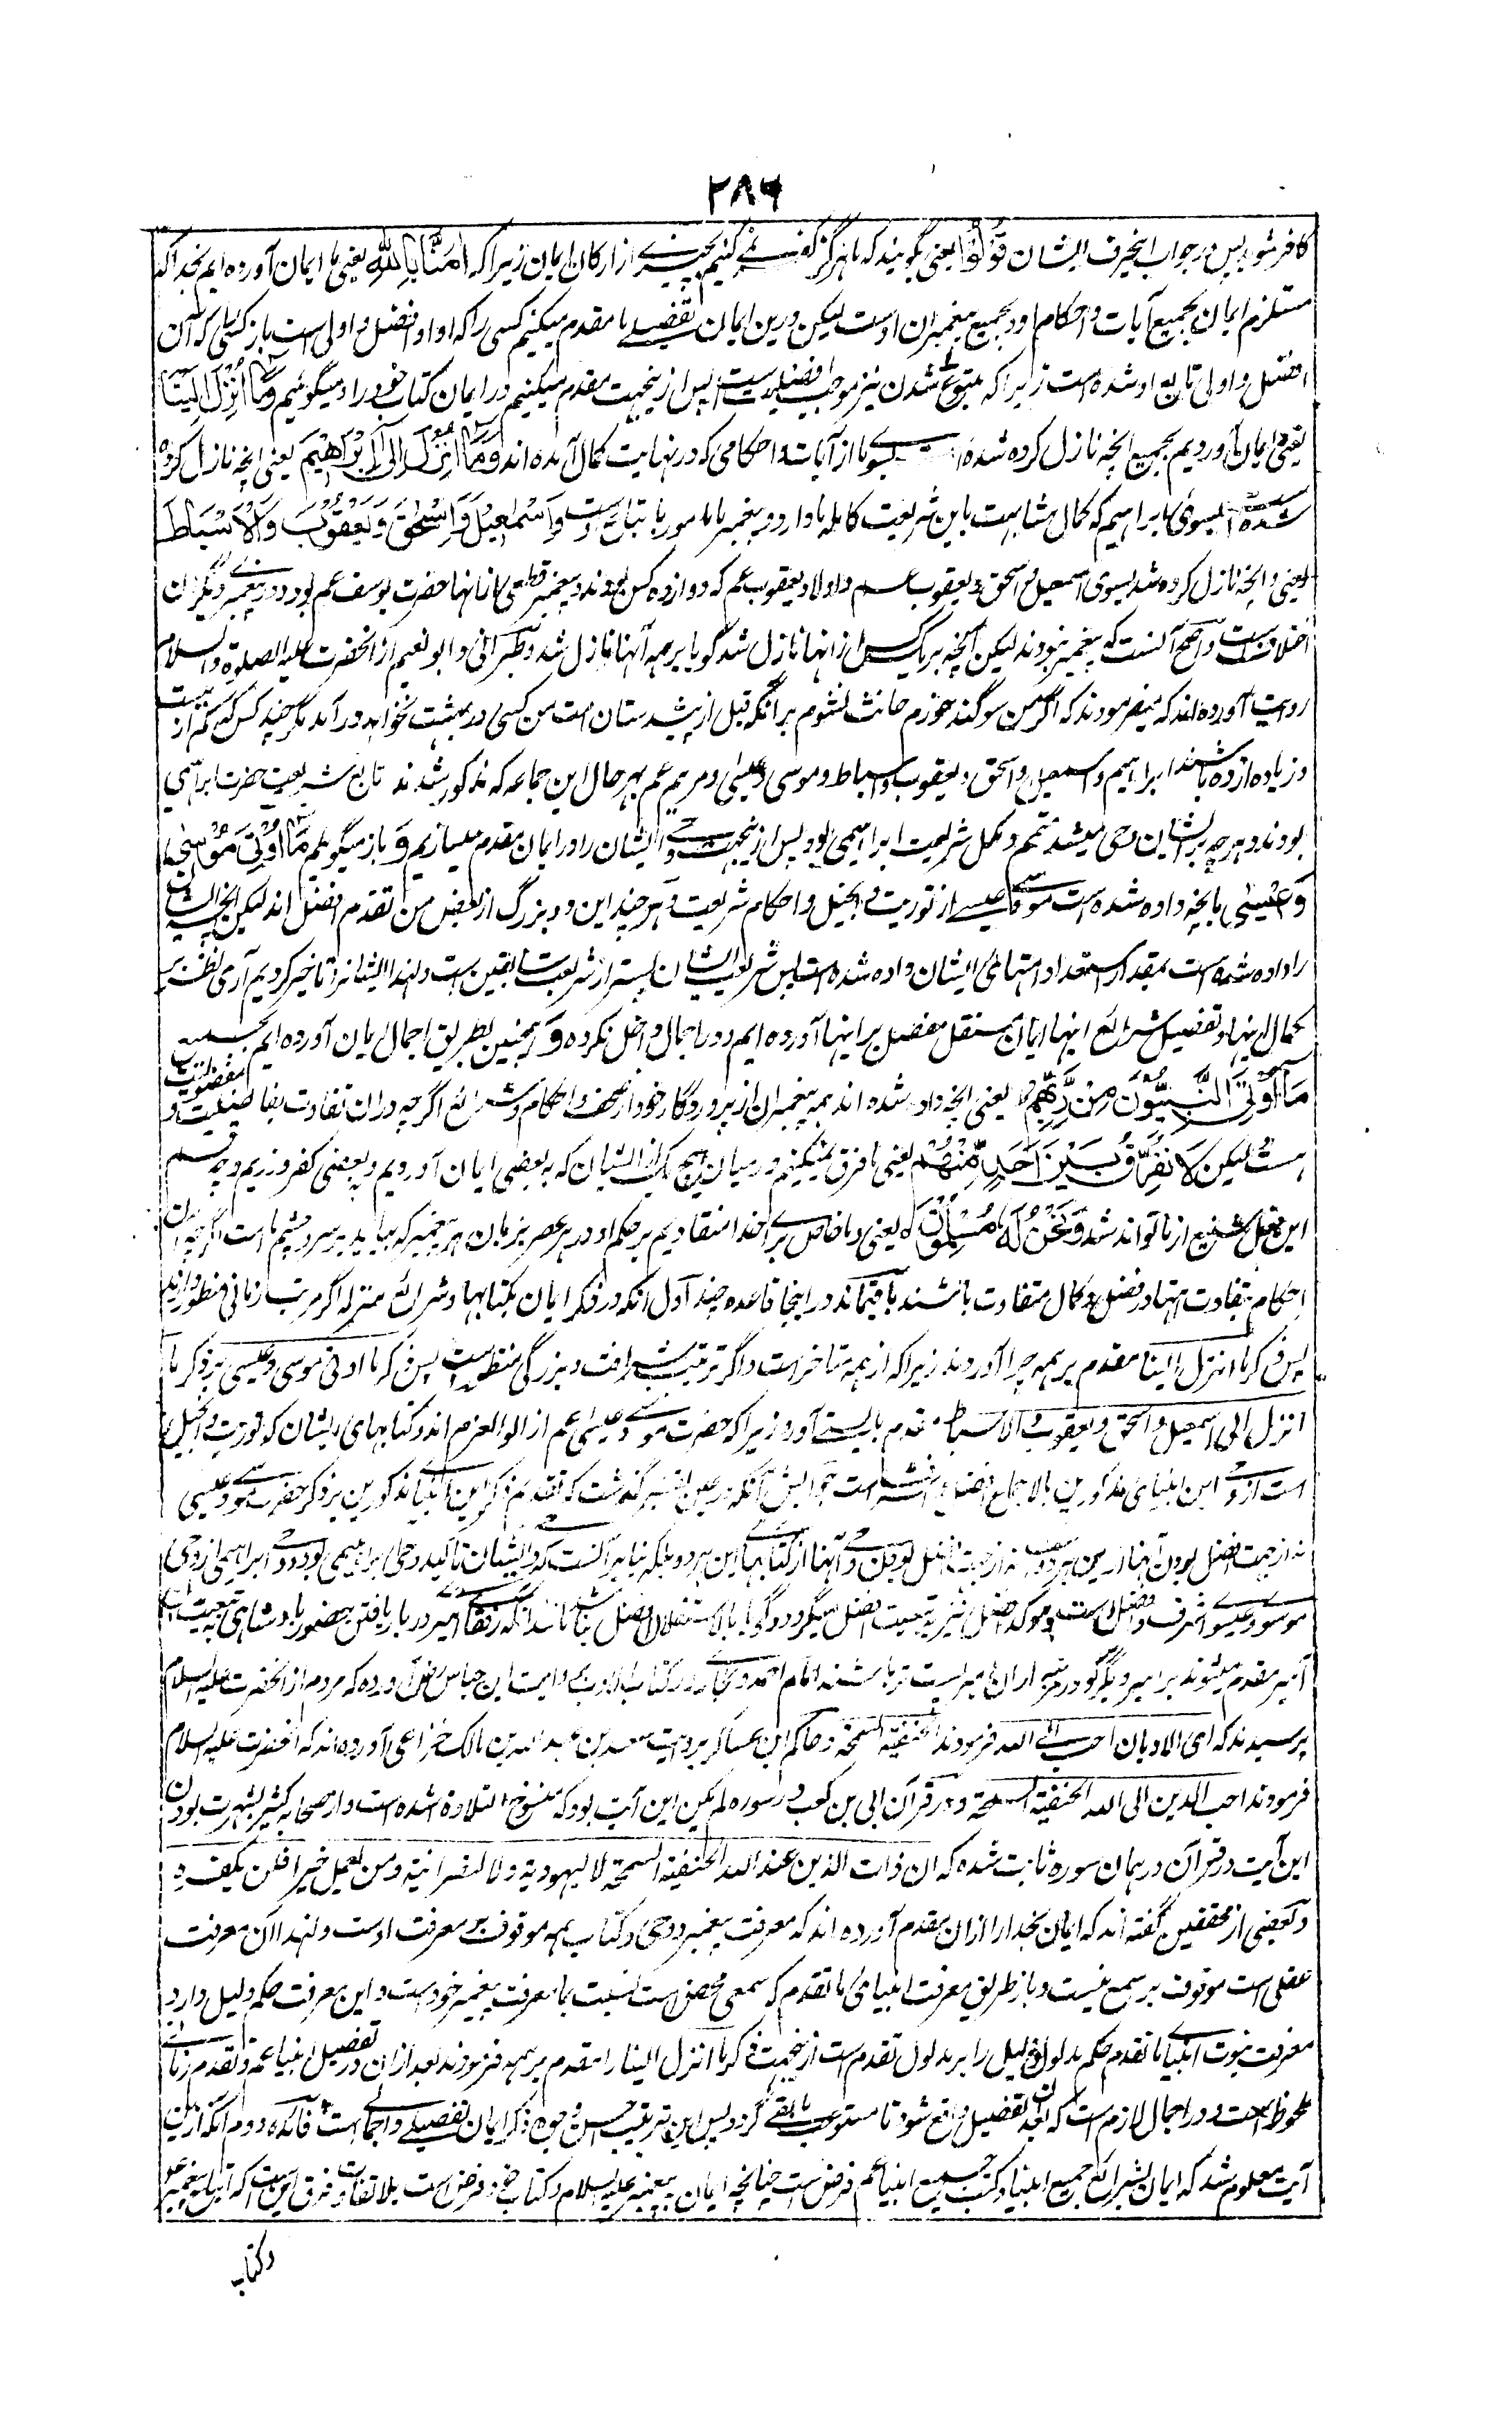 ۲۸۶
کافر شوید پس در جواب اینحرف ایشان قُوْلُوْا یعنی بگوئید که ما هرگز کفر نمی کنیم بچیزی از ارکان ایمان زیرا که اٰمَنَّا بِاللّٰهِ یعنی ما ایمان آورده ایم بخدا که
مستلزم ایمان بجمیع آیات و احکام او و بجمیع پیغمبران اوست لیکن درین ایمان تفصیلی ما مقدم میکنیم کسی را که او افضل و اولی است باز کسانی را که آن
افضل و اولی تابع او شده است زیرا که متبوع شدن نیز موجب افضلیت است پس ازینجهت مقدم میکنیم در ایمان کتاب خود را و میگوئیم وَمَا اُنْزِلَ اِلَیْنَا
یعنی ایمان آوردیم بجمیع انچه نازل کرده شده است بسوی ما از آیات و احکامی که در نهایت کمال آمده اند وَمَا اُنْزِلَ اِلٰی اِبْرَاهِیْمَ یعنی انچه نازل کرده
شده است بسوی ابراهیم که کمال مشابهت باین شریعت کامله ما دارد و پیغمبر ما مامور باتباع اوست وَاِسْمٰعِیْلَ وَاِسْحٰقَ وَیَعْقُوْبَ وَالْاَسْبَاطِ
یعنی و انچه نازل کرده شد بسوی اسمعیل و اسحق و یعقوب عم و اولاد یعقوب عم که دوازده کس بودند و پیغمبر قطعی از انها حضرت یوسف عم بود و در پیغمبری دیگران
اختلاف است و اصح آنست که پیغمبر نبودند لیکن آنچه بر یک کس از انها نازل شد گویا بر همه آنها نازل شد و طبرانی و ابو نعیم از انحضرت علیه الصلوة والسلام
روایت آورده اند که میفرمودند که اگر من سوگند خورم حانث نشوم بر انکه قبل از پیشدستان امت من کسی در بهشت نخواهد درآمد مگر چند کس که کم از بیست
و زیاده از ده باشند ابراهیم و اسمعیل و اسحق و یعقوب و اسباط و موسی و عیسی و مریم عم بهر حال این جماعه که مذکور شدند تابع شریعت حضرت ابراهیمی
بودند و هر چه بر ایشان وحی میشد متمم و مکمل شریعت ابراهیمی بود پس ازینجهت وحی ایشان را در ایمان مقدم میسازیم وَ باز میگوئیم مَا اُوْتِیَ مُوْسٰی
وَعِیْسٰی یا انچه داده شده است موسی و عیسی از توریت و انجیل و احکام شریعت و هر چند این دو بزرگ از بعض من تقدم افضل اند لیکن انچه ایشان
را داده شده است بمقدار استعداد امتهای ایشان داده شده است پس شریعت ایشان پستر از شریعت سابقین است و لهذا ایشانرا تاخیر کردیم آری نظر بر
کمال اینها و تفصیل شرائع اینها ایمان مستقل مفصل بر اینها آورده ایم و در اجمال داخل نکرده وَ همچنین بطریق اجمال ایمان آورده ایم بجمیع
مَا اُوْتِیَ النَّبِیُّوْنَ مِنْ رَّبِّهِمْ یعنی انچه داده شده اند همه پیغمبران از پروردگار خود از صحف و احکام و شرائع اگرچه دران تفاوت بفاضلیت و مفضولیت
هست لیکن لَا نُفَرِّقُ بَیْنَ اَحَدٍ مِّنْهُمْ یعنی ما فرق نمیکنیم در میان هیچ یک از ایشان که به بعضی ایمان آوردیم و به بعضی کفر ورزیم و چه قسم
این فعل شنیع از ما تواند شد وَنَحْنُ لَهٗ مُسْلِمُوْنَ یعنی و ما خاص برای خدا منقادیم هر حکم او در هر عصر بزبان هر پیغمبر که بیاید بر سر و چشم ماست اگرچه آن
احکام بتفاوت امتها در فضل و کمال متفاوت باشند باقیماند در اینجا قاعده چند اول انکه در ذکر ایمان بکتابها و شرائع منزله اگر ترتیب زمانی منظور دارند
پس ذکر ما انزل الینا مقدم بر همه چرا آوردند زیرا که از همه متاخر است و اگر ترتیب شرافت و بزرگی منظور است پس ذکر ما اوتی موسی و عیسی بر ذکر ما
انزل الی اسمعیل و اسحق و یعقوب والاسباط مقدم بایستی آورد زیرا که حضرت موسی و عیسی عم از الوالعزم اند و کتابهای ایشان که توریت و انجیل
است از وحی این انبیای مذکورین بالاجماع افضل و اشرف است جوابش آنکه در عین تفسیر گذشت که تقدیم ذکر این انبیای مذکورین بر ذکر حضرت موسی و عیسی
نه از جهت افضل بودن آنها از این هر دو است نه از جهت افضل بودن وحی آنها از کتابهای این هر دو بلکه بنا بر آنست که وحی ایشان تاکید وحی ابراهیمی بود و وحی ابراهیمی از وحی
موسوی و عیسوی اشرف و افضل است و موکد افضل نیز به تبعیت افضل میگردد گویا بالاستقلال افضل نباشد مانند انکه رفقای امیر در باریافتن بحضور بادشاهی به تبعیت آن
امیر مقدم میشوند بر امیر دیگر گو در مرتبه از ان امیر پست تر باشند امام احمد و بخاری در کتاب الادب بروایت ابن عباس رض آورده که مردم از انحضرت علیه السلام
پرسیدند که ای الادیان احب الی الله فرمودند الحنفیة السمحة و حاکم ابن عساکر بروایت سعد بن عبد الله بن مالک خزاعی آورده اند که انحضرت علیه السلام
فرمودند احب الدین الی الله الحنفیة السمحة و در قرآن ابی بن کعب در سوره لم یکن این آیت بود که منسوخ التلاوة شده است و از صحابه کثیر بشهرت بودن
این آیت در قرآن در همان سوره ثابت شده که ان ذات الدین عند الله الحنفیة السمحة لا الیهودیة ولا النصرانیة ومن یعمل خیرا فلن یکفره
و بعضی از محققین گفته اند که ایمان بخدا را ازان مقدم آورده اند که معرفت پیغمبر و وحی و کتاب همه موقوف بر معرفت اوست و لهذا آن معرفت
عقلی است موقوف بر سمع نیست و باز طریق معرفت انبیای ما تقدم که سمعی محض است نسبت بما معرفت پیغمبر خود است و این معرفت حکم دلیل دارد
معرفت نبوت انبیای ما تقدم حکم مدلول و دلیل را بر مدلول تقدم است ازینجهت ذکر ما انزل الینا را مقدم بر همه فرمودند بعد ازان در تفصیل انبیا عم تقدم زمانی
ملحوظ است و در اجمال لازم است که بعد تفصیل واقع شود تا مستوعب ما بقی گردد پس این ترتیب احسن وجوه ذکر ایمان تفصیلی و اجمالی است فائده دوم آنکه ازین
آیت معلوم شد که ایمان بشرائع جمیع انبیا و کتب جمیع انبیا عم فرض است چنانچه ایمان به پیغمبر علیه السلام و کتاب خود فرض است بلا تفاوت و فرق این است که اتباع پیغمبر خود
و کتاب